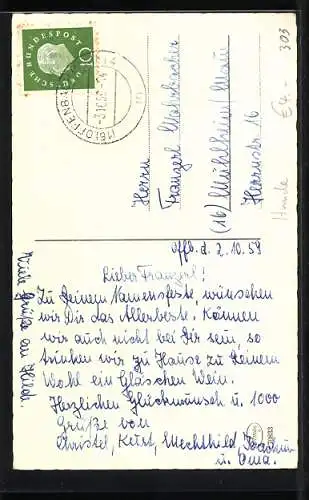 DEUTSCHE BUNDESPOST
10
(16) OFFENBACH
-3.10.59
Herrn
Franzerl
(16) Mühlheim/Main
Herrnstr. 16
303
E4.-
Hunde
Offb. d. 2.10.59
Lieber Franzerl!
Zu Deinem Namensfeste, wünschen
wir Dir das Allerbeste. Können
wir auch nicht bei Dir sein, so
trinken wir zu Hause zu Deinem
Wohl ein Gläschen Wein.
Herzlichen Glückwunsch u. 1000
Grüße von
Christel, Kurt, Mechthild, Joachim
u. Oma.
Viele Grüße an